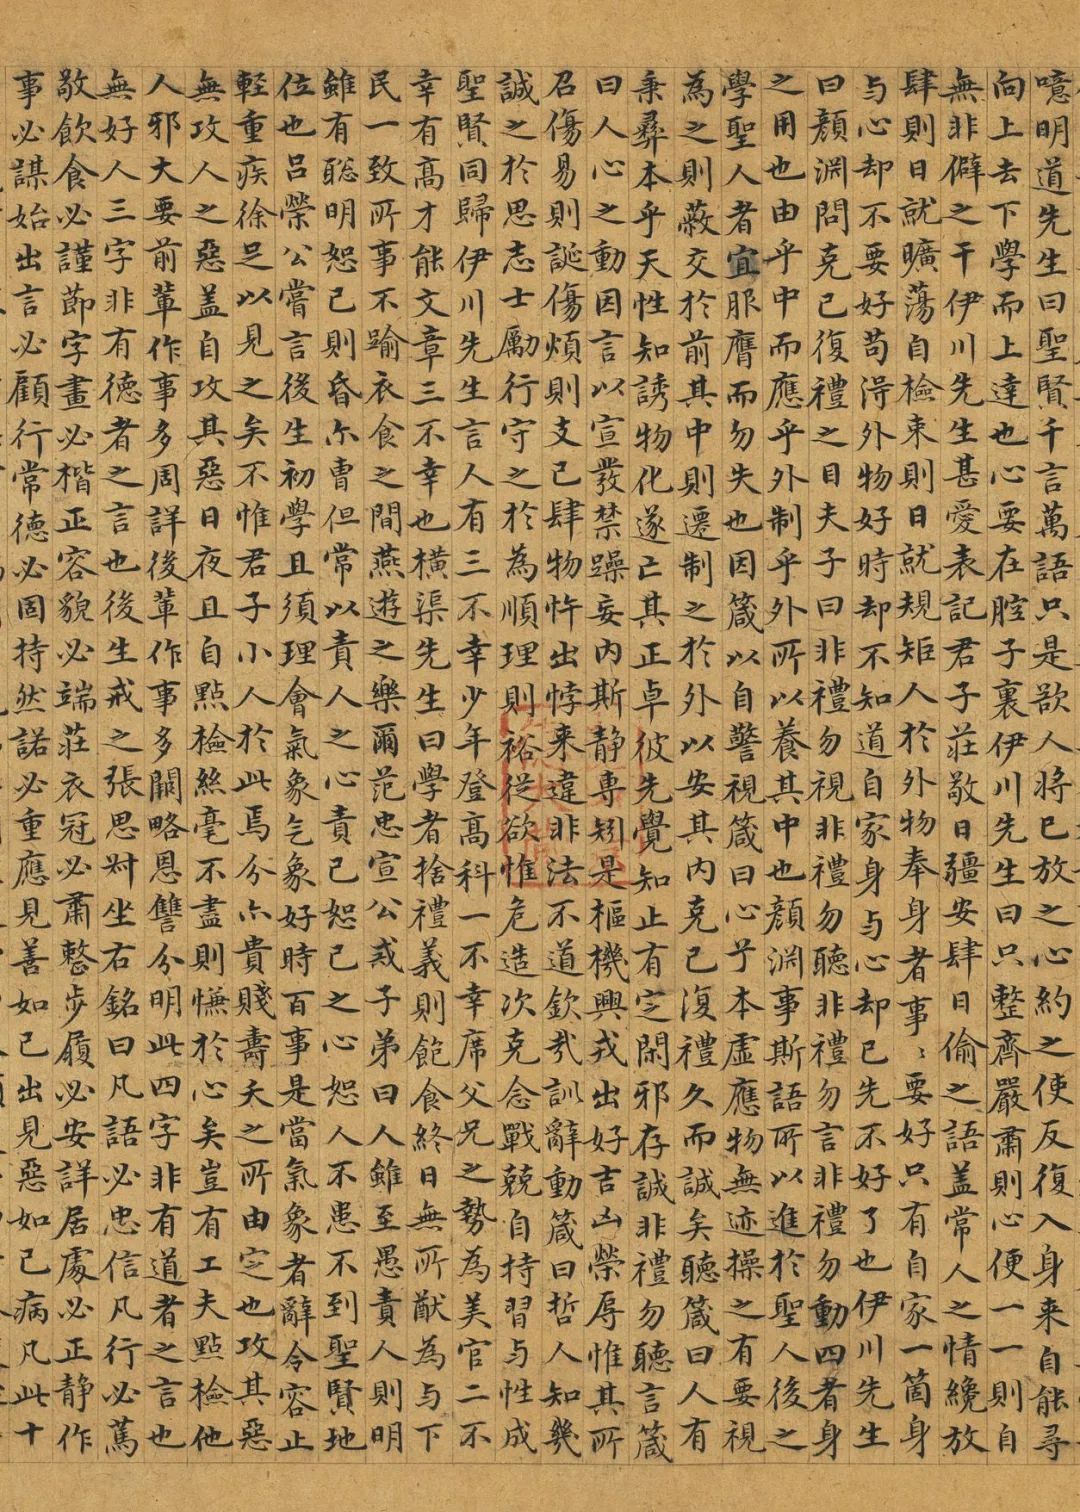 噫明道先生曰聖賢千言萬語只是欲人將已放之心約之使反復入身来自能尋
向上去下學而上達也心要在腔子裏伊川先生曰只整齊嚴肅則心便一一則自
無非僻之干伊川先生甚愛表記君子莊敬日彊安肆日偷之語盖常人之情纔放
肆則日就曠蕩自檢束則日就規矩人於外物奉身者事〻要好只有自家一箇身
与心却不要好苟淂外物好時却不知道自家身与心却已先不好了也伊川先生
曰顔渊問克己復禮之目夫子曰非禮勿視非禮勿聽非禮勿言非禮勿動四者身
之用也由乎中而應乎外制乎外所以養其中也顔渊事斯語所以進於聖人後之
學聖人者宜服膺而勿失也因箴以自警視箴曰心乎本虛應物無迹操之有要視
為之則蔽交於前其中則遷制之於外以安其内克己復禮久而誠矣聽箴曰人有
秉彝本乎天性知誘物化遂亡其正卓彼先覺知止有定閑邪存誠非禮勿聽言箴
曰人心之動因言以宣發禁躁妄内斯静專矧是樞機興戎出好吉凶榮辱惟其所
召傷易則誕傷煩則支己肆物忤出悖来違非法不道欽㢤訓辭動箴曰哲人知幾
誠之於思志士勵行守之於為順理則裕從欲惟危造次克念戰兢自持習与性成
聖賢同歸伊川先生言人有三不幸少年登高科一不幸席父兄之勢為美官二不
幸有髙才能文章三不幸也橫渠先生曰學者捨禮義則飽食終日無所猷為与下
民一致所事不踰衣食之間燕遊之樂爾范忠宣公戒子弟曰人雖至愚責人則明
雖有聡明恕己則昏尒曹但常以責人之心責己恕己之心恕人不患不到聖賢地
位也呂榮公嘗言後生初學且須理會氣象气象好時百事是當氣象者辭令容止
輕重疾徐足以見之矣不惟君子小人於此焉分亦貴賤壽夭之所由定也攻其惡
無攻人之惡盖自攻其惡日夜且自點檢絲毫不盡則慊於心矣豈有工夫點檢他
人邪大要前輩作事多周詳後輩作事多闕略恩讐分明此四字非有道者之言也
無好人三字非有德者之言也後生戒之張思叔坐右銘曰凡語必忠信凡行必篤
敬飲食必謹節字畫必楷正容貌必端莊衣冠必肅整步履必安詳居處必正静作
事必謀始出言必顧行常德必固持然諾必重應見善如己出見惡如己病凡此十